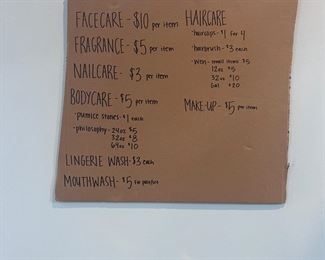 FACECARE - $10 per item
FRAGRANCE - $5 per item
NAILCARE - $3 per item
BODYCARE - $5 per item
· pumice stones - $1 each
· philosophy - 24oz $5
32oz $8
64oz $10
LINGERIE WASH - $3 each
MOUTHWASH - $5 for
HAIRCARE
· hairclips - $1 for 4
· hairbrush - $3 each
· wen - small items $5
12oz $5
32oz $10
Gal $20
MAKE-UP - $5 per item